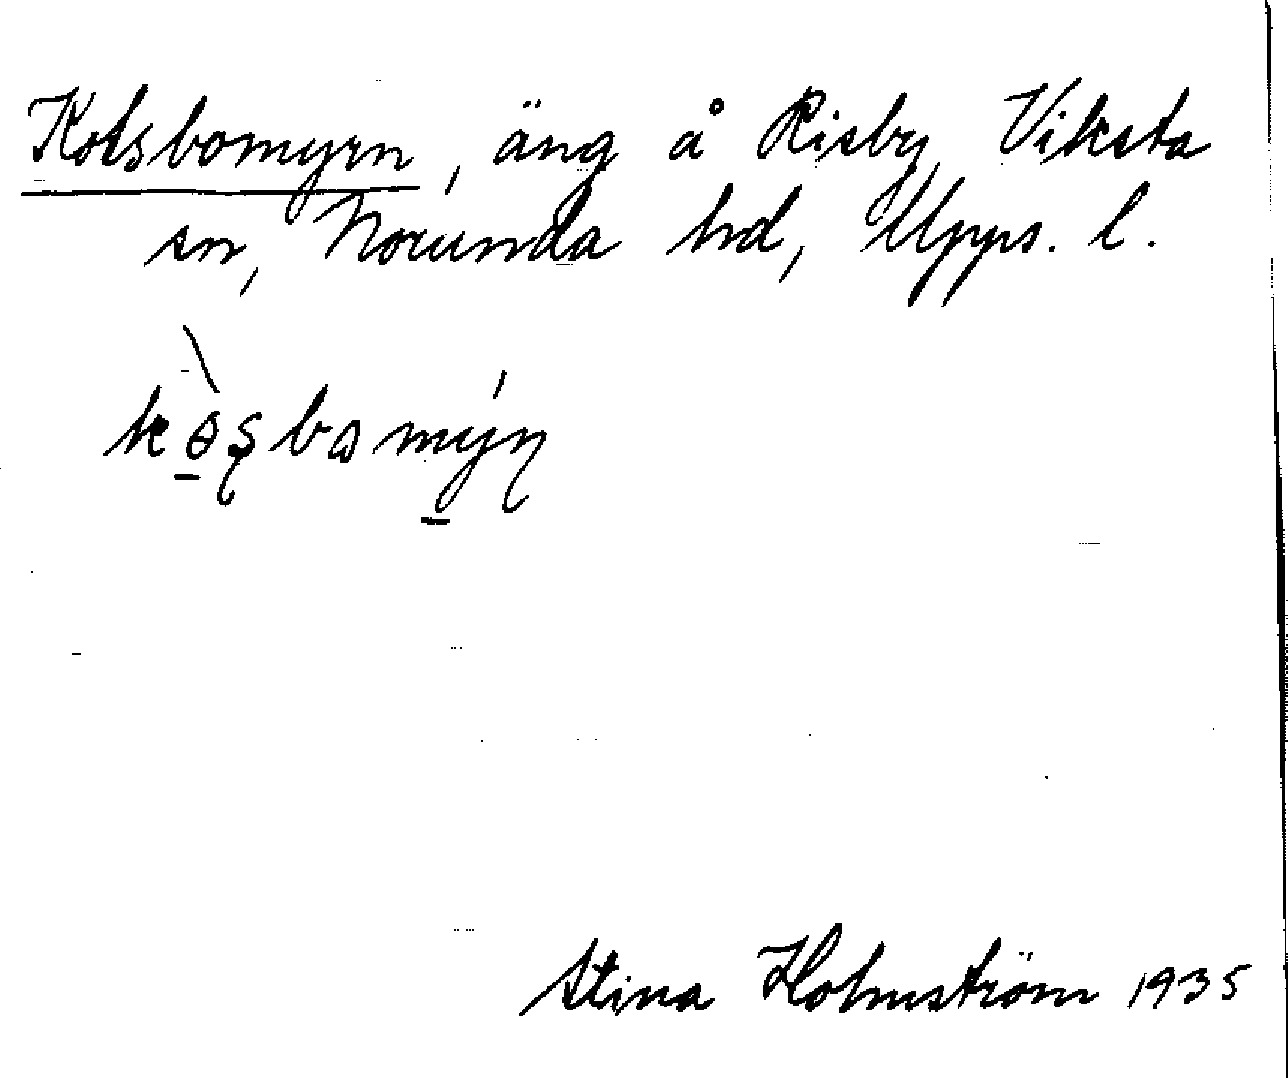 Kotsbomyrn, äng å Risby, Viksta
sn, Norunda hd, Upps. l.
Stina Holmström 1935